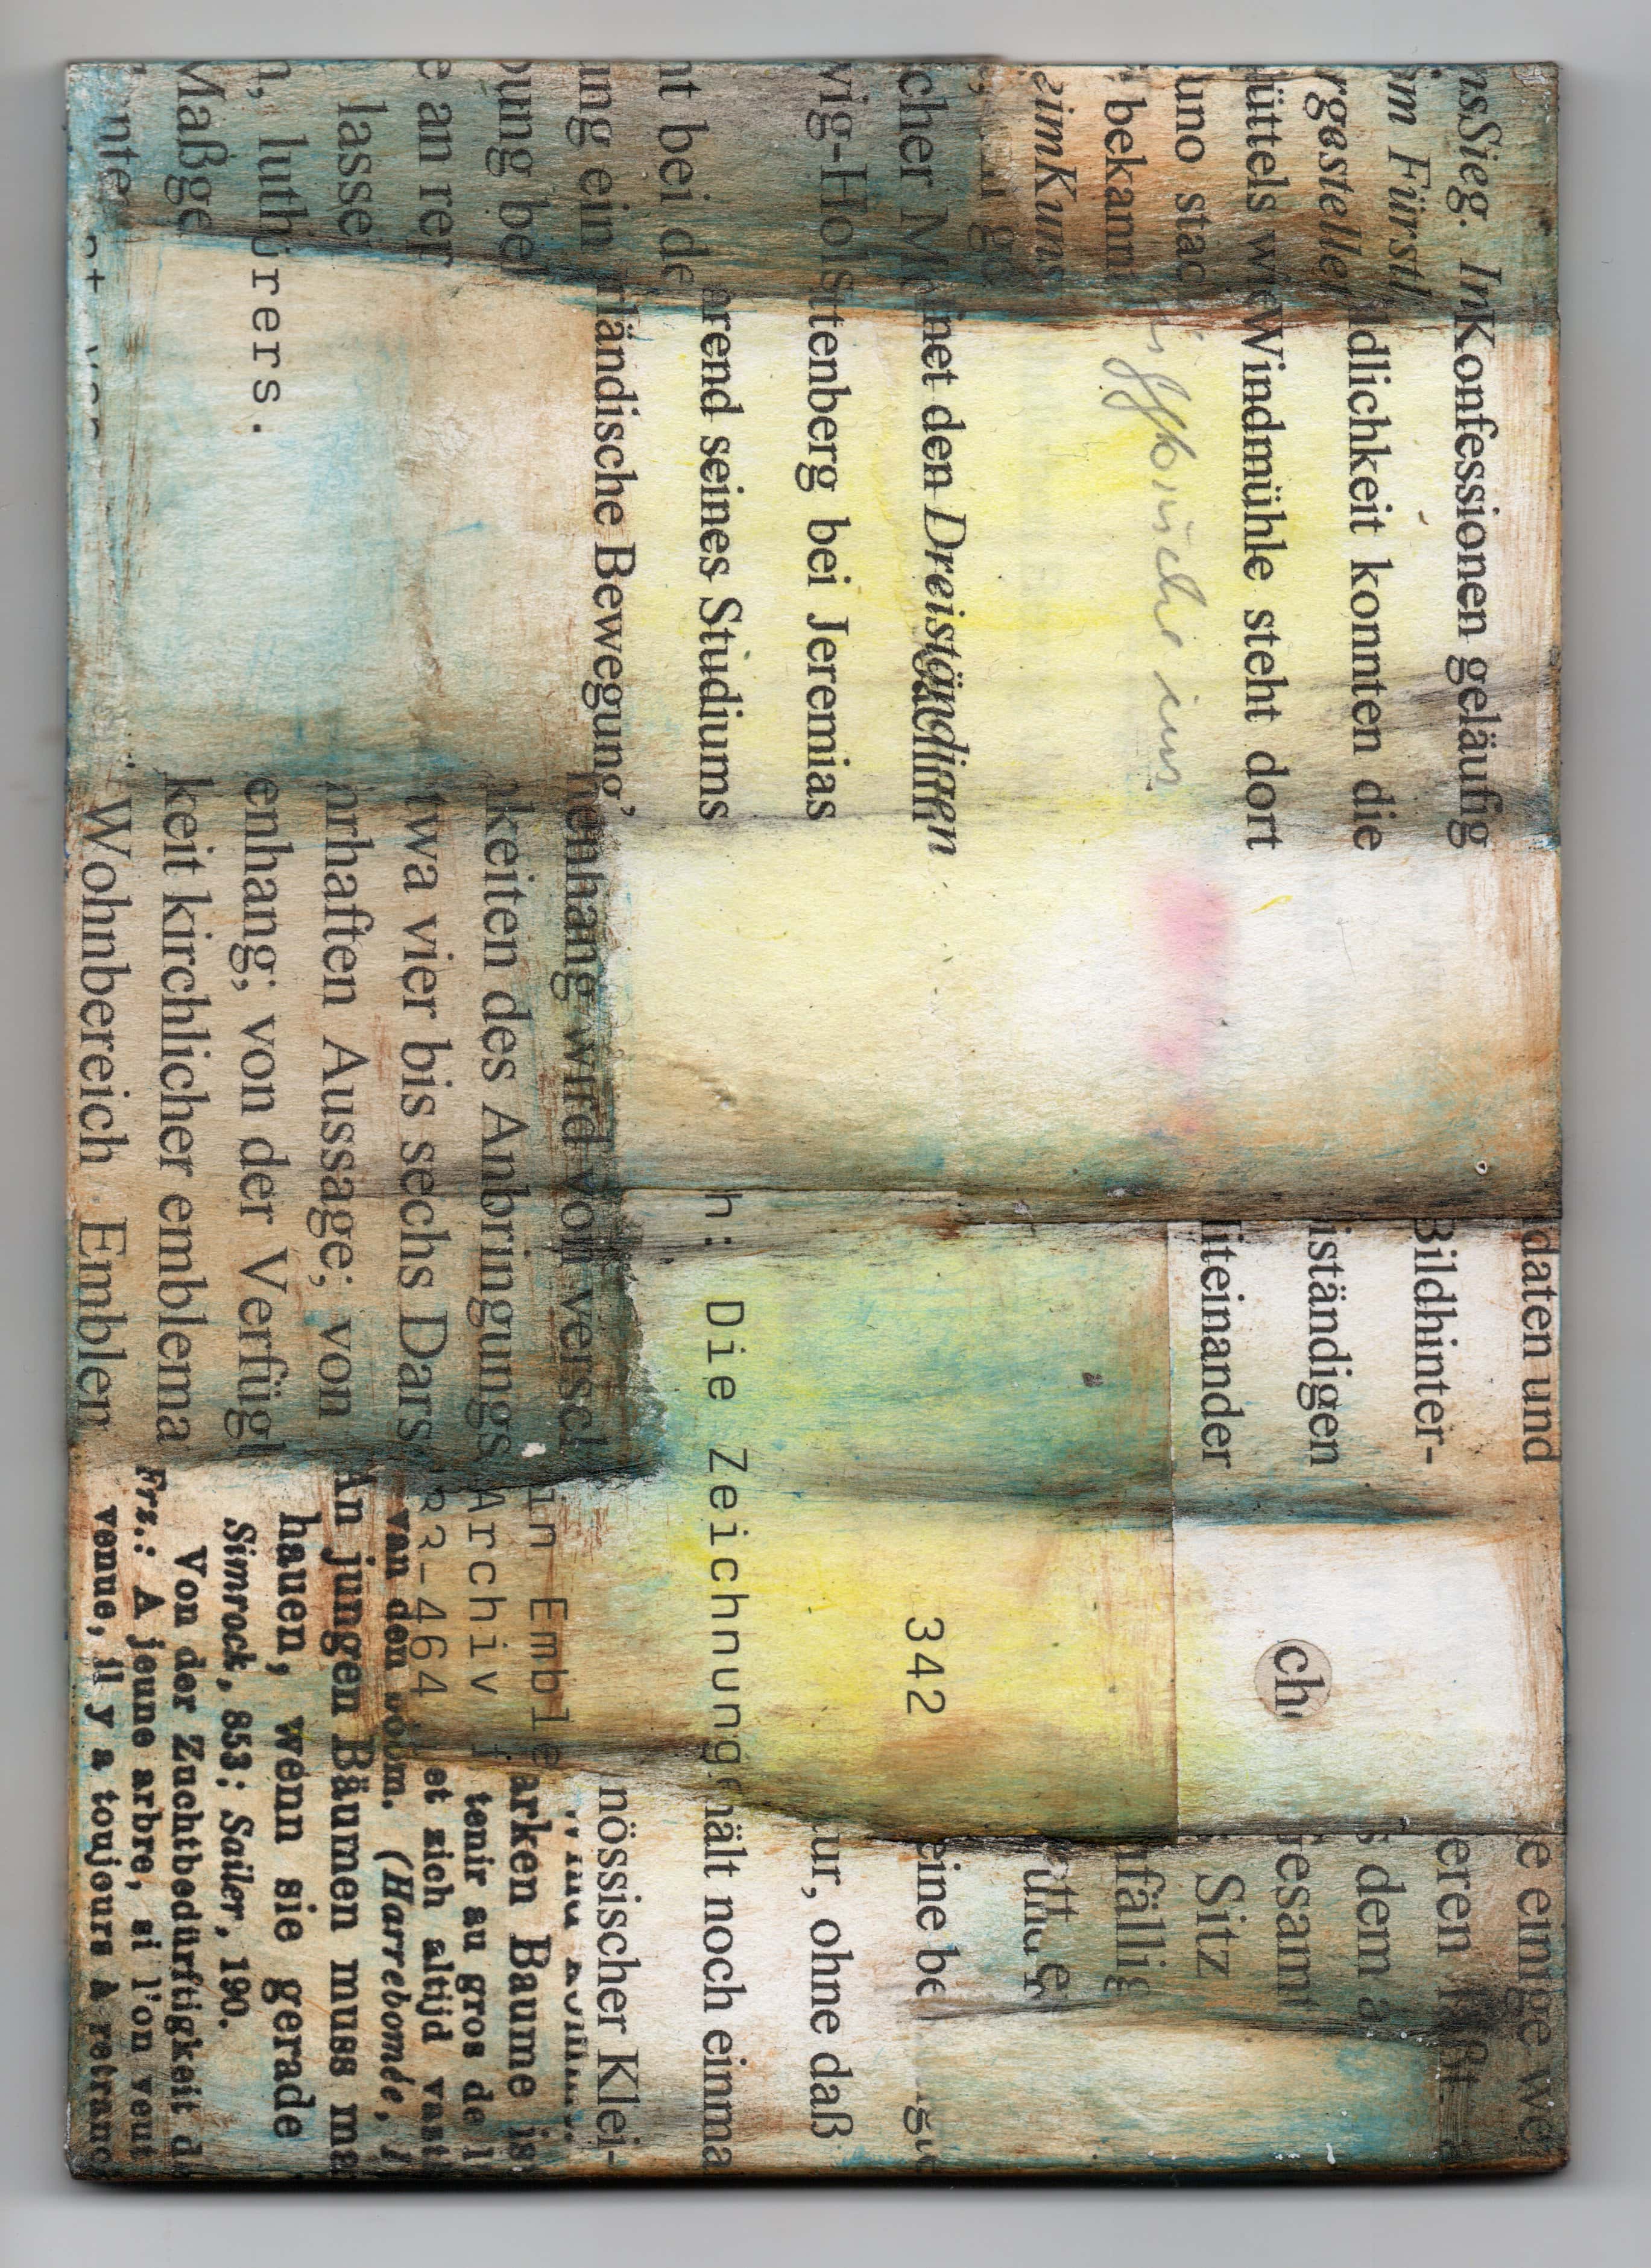 nsSieg. In
im Fürstl
rgestellen
üttels we
uno stad
bekann
eimKuns
cher M
vig-Hols
nt bei de
ung ein
bung be
e an rer
lassen
n, luth
Maßge
nte
Konfessionen geläufig
dlichkeit konnten die
Windmühle steht dort
net den Dreiständigen
ttenberg bei Jeremias
arend seines Studiums
rländische Bewegung,
hrers.
nenhang wird von versch
keiten des Anbringungs
twa vier bis sechs Dars
nrhaften Aussage; von
enhang; von der Verfügl
keit kirchlicher emblema
Wohnbereich. Emblen
daten und
Bildhinter-
iständigen
iteinander
ch
342
h: Die Zeichnung
in Emble
Archiv f
83-464
e einige we
eren läßt
s dem a
Gesamt
Sitz
nfällig
eine be
ur, ohne daß
hält noch einma
nössischer Klei-
arken Baume is
tenir au gros de l
et zich altijd vast
van den boom. (Harrebomée, I
An jungen Bäumen muss ma
hauen, wenn sie gerade
Simrock, 853; Sailer, 190.
Von der Zuchtbedürftigkeit d
Frz.: A jeune arbre, si l'on veut
venue, il y a toujours à retranc